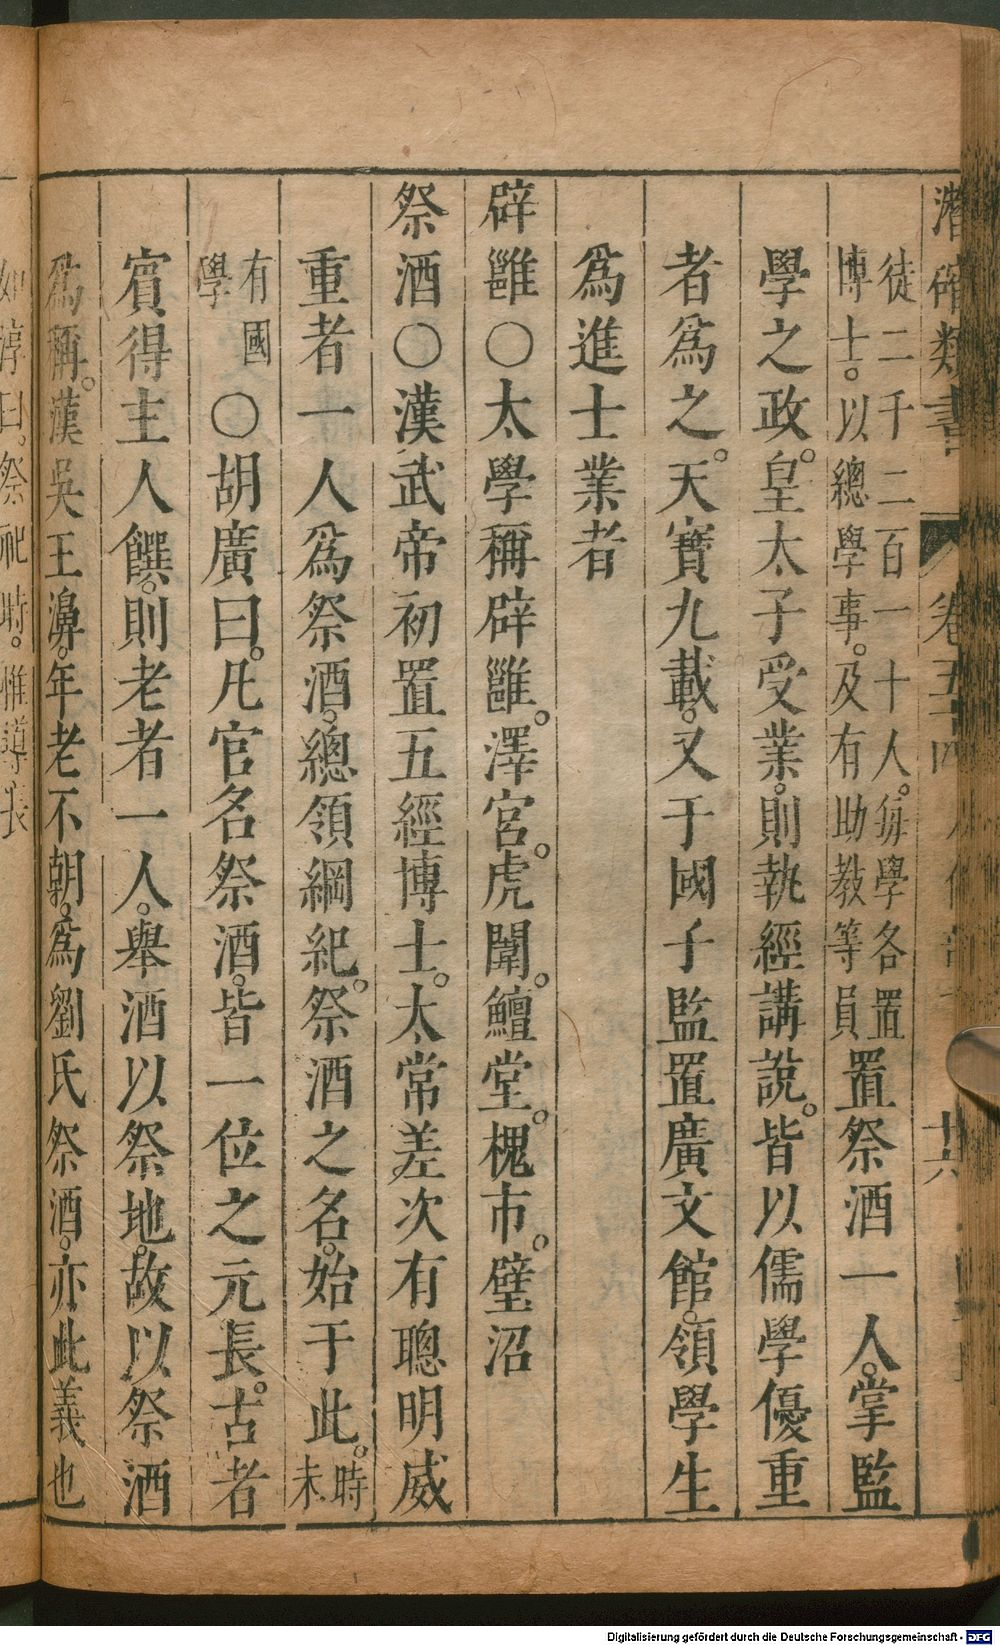 潛確類書 卷五十四 十六
徒二千二百一十人。每學各置
博士。以總學事。及有助教等員
置祭酒一人。掌監
學之政。皇太子受業。則執經講說。皆以儒學優重
者爲之。天寶九載。又于國子監置廣文館。領學生
爲進士業者
辟雝〇太學稱辟雝。澤宮。虎闈。鱣堂。槐市。璧沼
祭酒〇漢武帝初置五經博士。太常差次有聰明威
重者一人爲祭酒。總領綱紀。祭酒之名。始于此。時未
有國學
〇胡廣曰。凡官名祭酒。皆一位之元長。古者
賓得主人饌。則老者一人。舉酒以祭地。故以祭酒
爲稱。漢吳王濞。年老不朝。爲劉氏祭酒。亦此義也
如淳曰。祭祀時。惟尊長
Digitalisierung gefördert durch die Deutsche Forschungsgemeinschaft - DFG